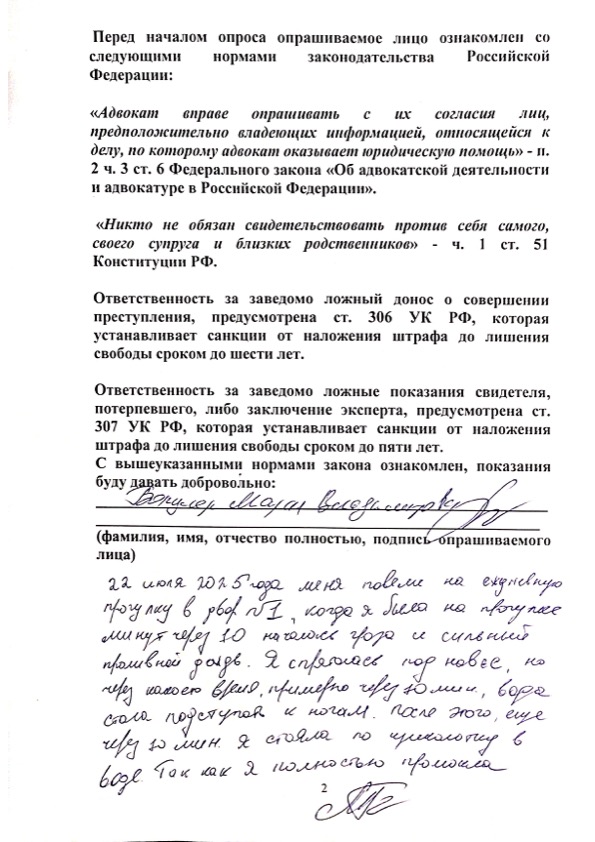 Перед началом опроса опрашиваемое лицо ознакомлен со
следующими нормами законодательства Российской
Федерации:
«Адвокат вправе опрашивать с их согласия лиц,
предположительно владеющих информацией, относящейся к
делу, по которому адвокат оказывает юридическую помощь» - п.
2 ч. 3 ст. 6 Федерального закона «Об адвокатской деятельности
и адвокатуре в Российской Федерации».
«Никто не обязан свидетельствовать против себя самого,
своего супруга и близких родственников» - ч. 1 ст. 51
Конституции РФ.
Ответственность за заведомо ложный донос о совершении
преступления, предусмотрена ст. 306 УК РФ, которая
устанавливает санкции от наложения штрафа до лишения
свободы сроком до шести лет.
Ответственность за заведомо ложные показания свидетеля,
потерпевшего, либо заключение эксперта, предусмотрена ст.
307 УК РФ, которая устанавливает санкции от наложения
штрафа до лишения свободы сроком до пяти лет.
С вышеуказанными нормами закона ознакомлен, показания
буду давать добровольно:
(фамилия, имя, отчество полностью, подпись опрашиваемого
лица)
22 июля 2025 года меня повели на ежедневную
прогулку в двор №1, когда я была на прогулке
минут через 10 началась гроза и сильный
проливной дождь. Я спряталась под навес, но
через какое-то время, примерно через 10 мин., вода
стала подступать к ногам. После этого, еще
через 10 мин. я стояла по щиколотку в
воде. Так как я полностью промокла
2